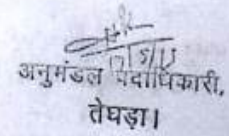 अनुमंडल पदाधिकारी,
तेघड़ा।